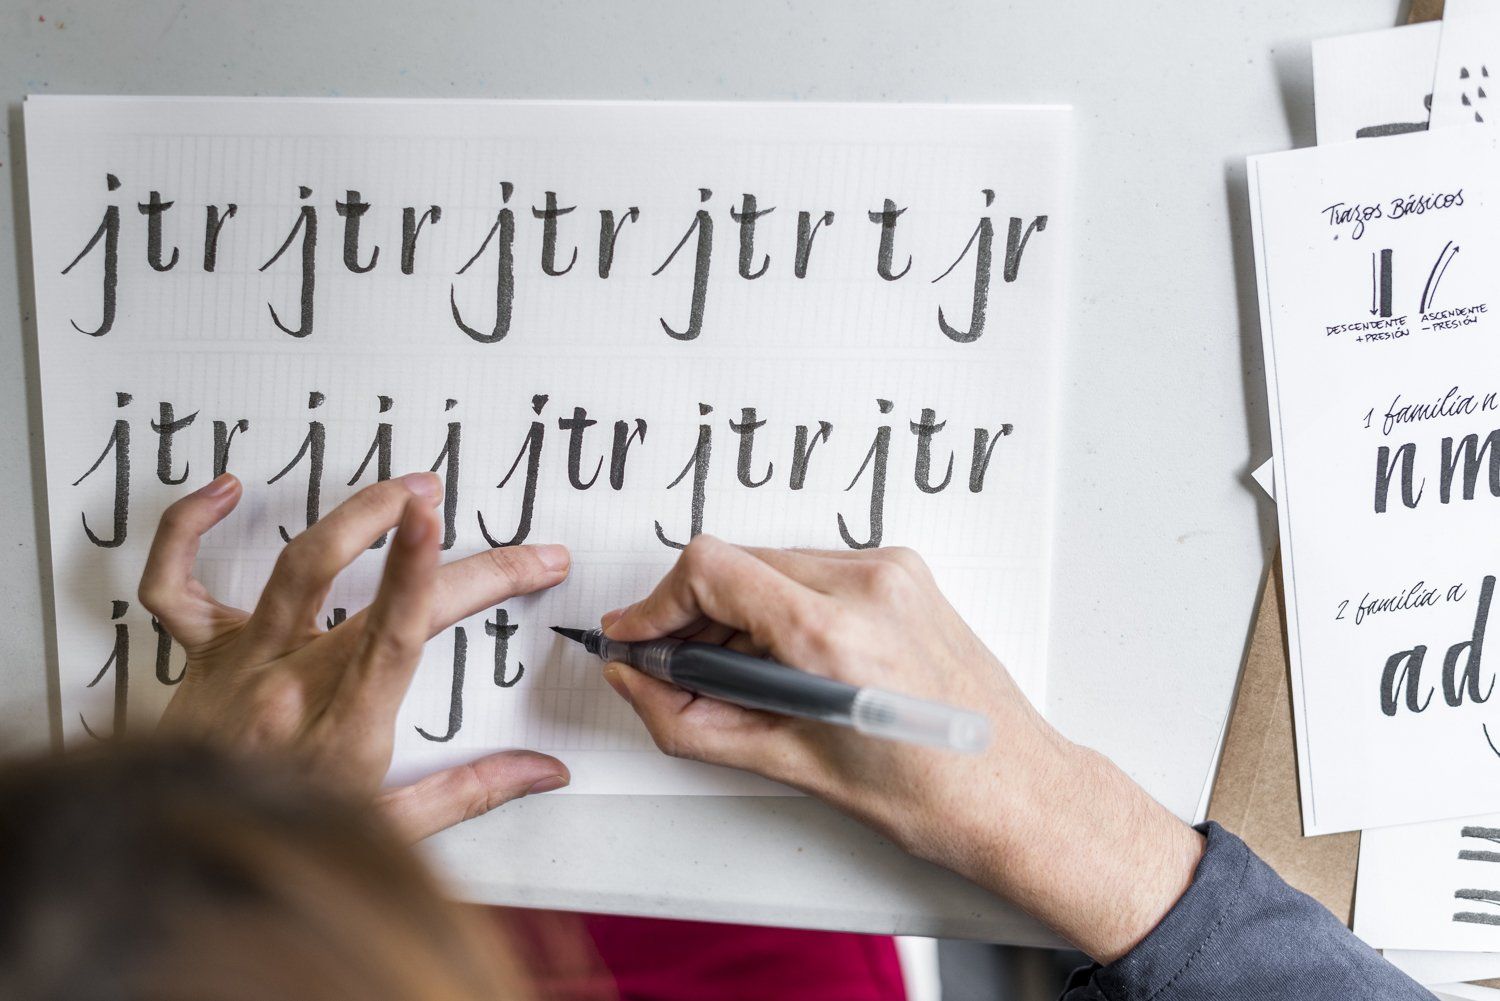 jtr jtr jtr jtr t jr
jtr j j j jtr jtr jtr
jt jt
Trazos Básicos
DESCENDENTE ASCENDENTE
+ PRESIÓN - PRESIÓN
1 familia n
n m
2 familia a
a d